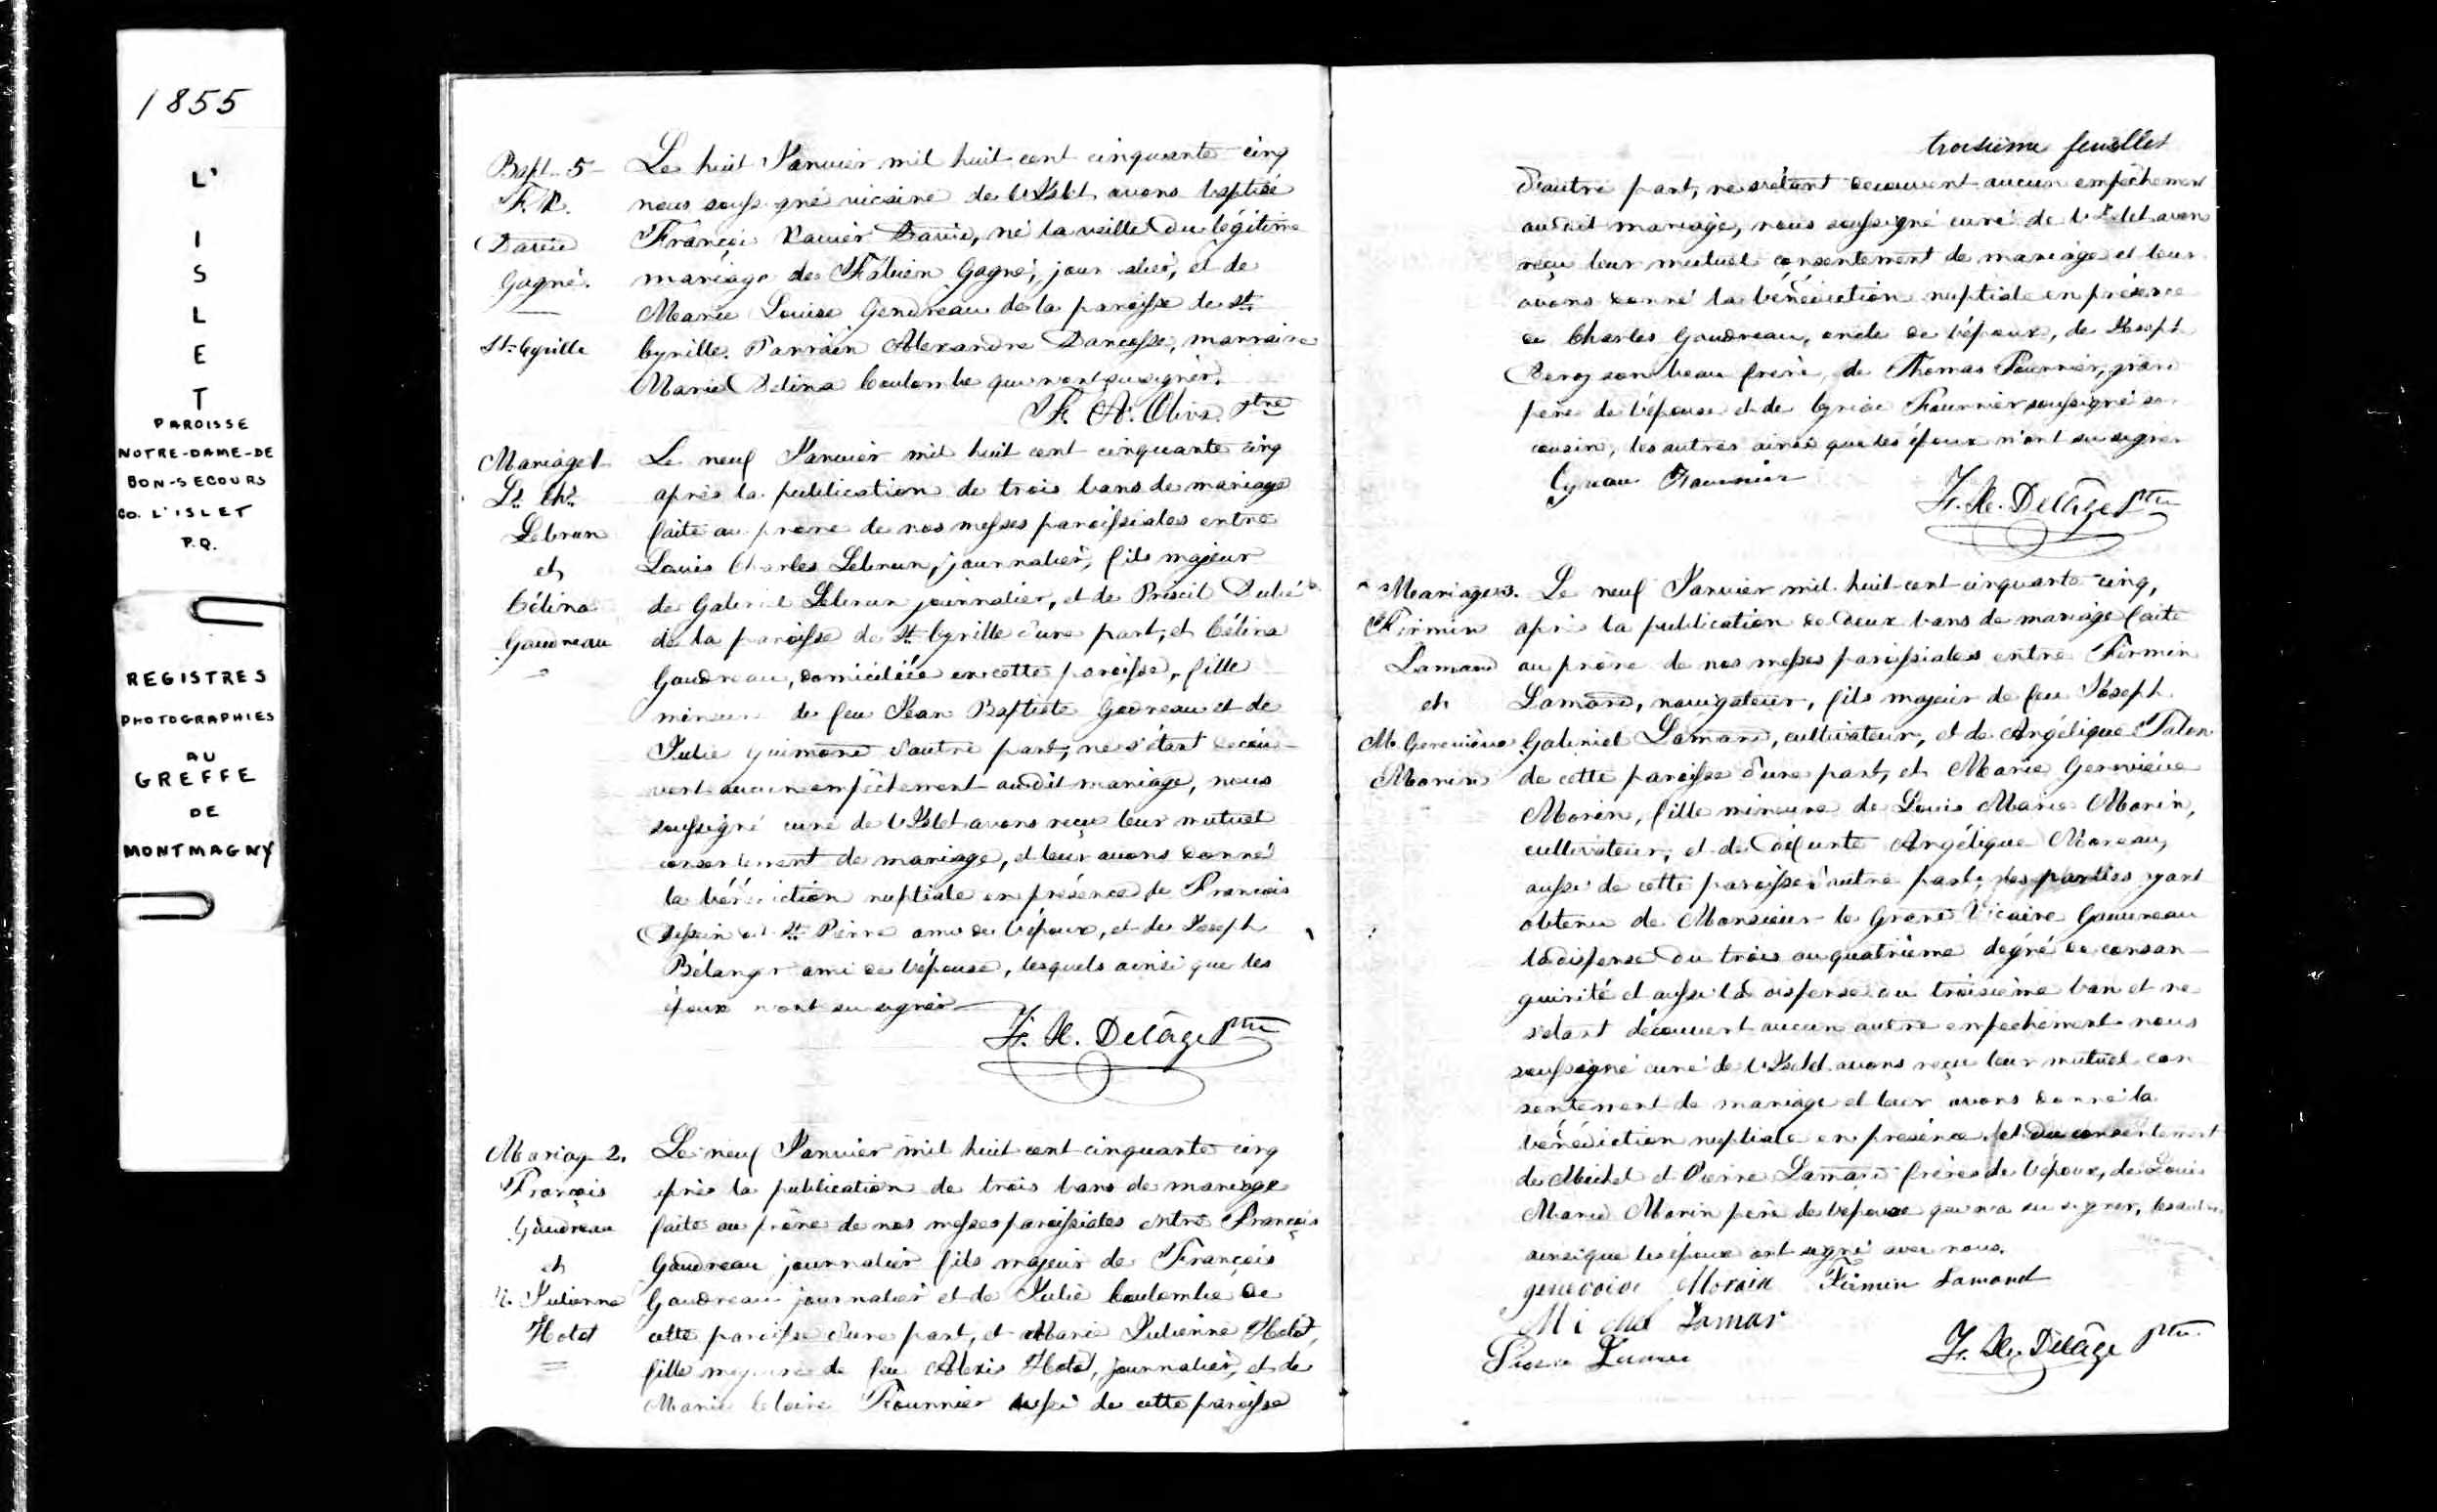 1855
L'
I
S
L
E
T
PAROISSE
NOTRE-DAME-DE
BON-SECOURS
CO. L'ISLET
P.Q.
REGISTRES
PHOTOGRAPHIES
AU
GREFFE
DE
MONTMAGNY
Bapt. 5
F. X.
David
Gagné.
St. Cyrille
Le huit Janvier mil huit cent cinquante cinq
nous soussigné vicaire de l'Islet avons baptisé
François Xavier David, né la veille du légitime
mariage de Fabien Gagné, journalier, et de
Marie Louise Gendreau de la paroisse de St.
Cyrille. Parrain Alexandre Dancosse, marraine
Marie Délina Coulombe qui n'ont su signer.
Ptre
Mariage 1
Ls. Chs.
Lebrun
et
Célina
Gaudreau
Le neuf Janvier mil huit cent cinquante cinq
après la publication de trois bans de mariage
faite au prône de nos messes paroissiales entre
Louis Charles Lebrun, journalier, fils majeur
de Gabriel Lebrun journalier, et de
de la paroisse de St. Cyrille d'une part, et Célina
Gaudreau, domiciliée en cette paroisse, fille
mineure de feu Jean Baptiste Godreau et de
Julie Guimond d'autre part, ne s'étant décou-
vert aucun empêchement audit mariage, nous
soussigné curé de l'Islet avons reçu leur mutuel
consentement de mariage, et leur avons donné
la bénédiction nuptiale en présence de François
dit St. Pierre ami de l'époux, et de Joseph
Bélanger ami de l'épouse, lesquels ainsi que les
époux n'ont su signer
F. X. Delâge Ptre
Mariag 2.
François
Gaudreau
et
M. Julienne
Hotot
Le neuf Janvier mil huit cent cinquante cinq
après la publication de trois bans de mariage
faite au prône de nos messes paroissiales entre François
Gaudreau journalier fils majeur de François
Gaudreau journalier et de Julie Coulombe de
cette paroisse d'une part, et Marie Julienne Hotot,
fille majeure de feu Alexis Hotot, journalier, et de
Marie Claire Fournier aussi de cette paroisse
troisième feuillet
d'autre part, ne s'étant découvert aucun empêchement
audit mariage, nous soussigné curé de l'Islet avons
reçu leur mutuel consentement de mariage et leur
avons donné la bénédiction nuptiale en présence
de Charles Gaudreau, oncle de l'époux, de Joseph
son beau frère, de Thomas Fournier, grand
père de l'épouse et de Fournier soussigné son
cousin, les autres ainsi que les époux n'ont su signer
Fournier
F. X. Delâge Ptre
Mariage 3.
Firmin
Lamard
et
M. Geneviève
Morin
Le neuf Janvier mil huit cent cinquante cinq,
après la publication de deux bans de mariage faite
au prône de nos messes paroissiales entre Firmin
Lamard, navigateur, fils majeur de feu Joseph
Gabriel Lamard, cultivateur, et de Angélique Talon
de cette paroisse d'une part, et Marie Geneviève
Morin, fille mineure de Louis Marie Morin,
cultivateur, et de défunte Angélique Moreau,
aussi de cette paroisse d'autre part; les parties ayant
obtenu de Monsieur le Grand Vicaire Gauvreau
la dispense du trois au quatrième dégré de consan-
guinité et aussi la dispense du troisième ban et ne
s'étant découvert aucun autre empêchement nous
soussigné curé de l'Islet avons reçu leur mutuel con
sentement de mariage et leur avons donné la
bénédiction nuptiale en présence et du consentement
de Michel et Pierre Lamard frères de l'époux, de Louis
Marie Morin père de l'épouse qui n'a su signer, les autres
ainsi que les époux ont signé avec nous.
Morain Firmin Lamard
Michel Lamar
F. X. Delâge Ptre